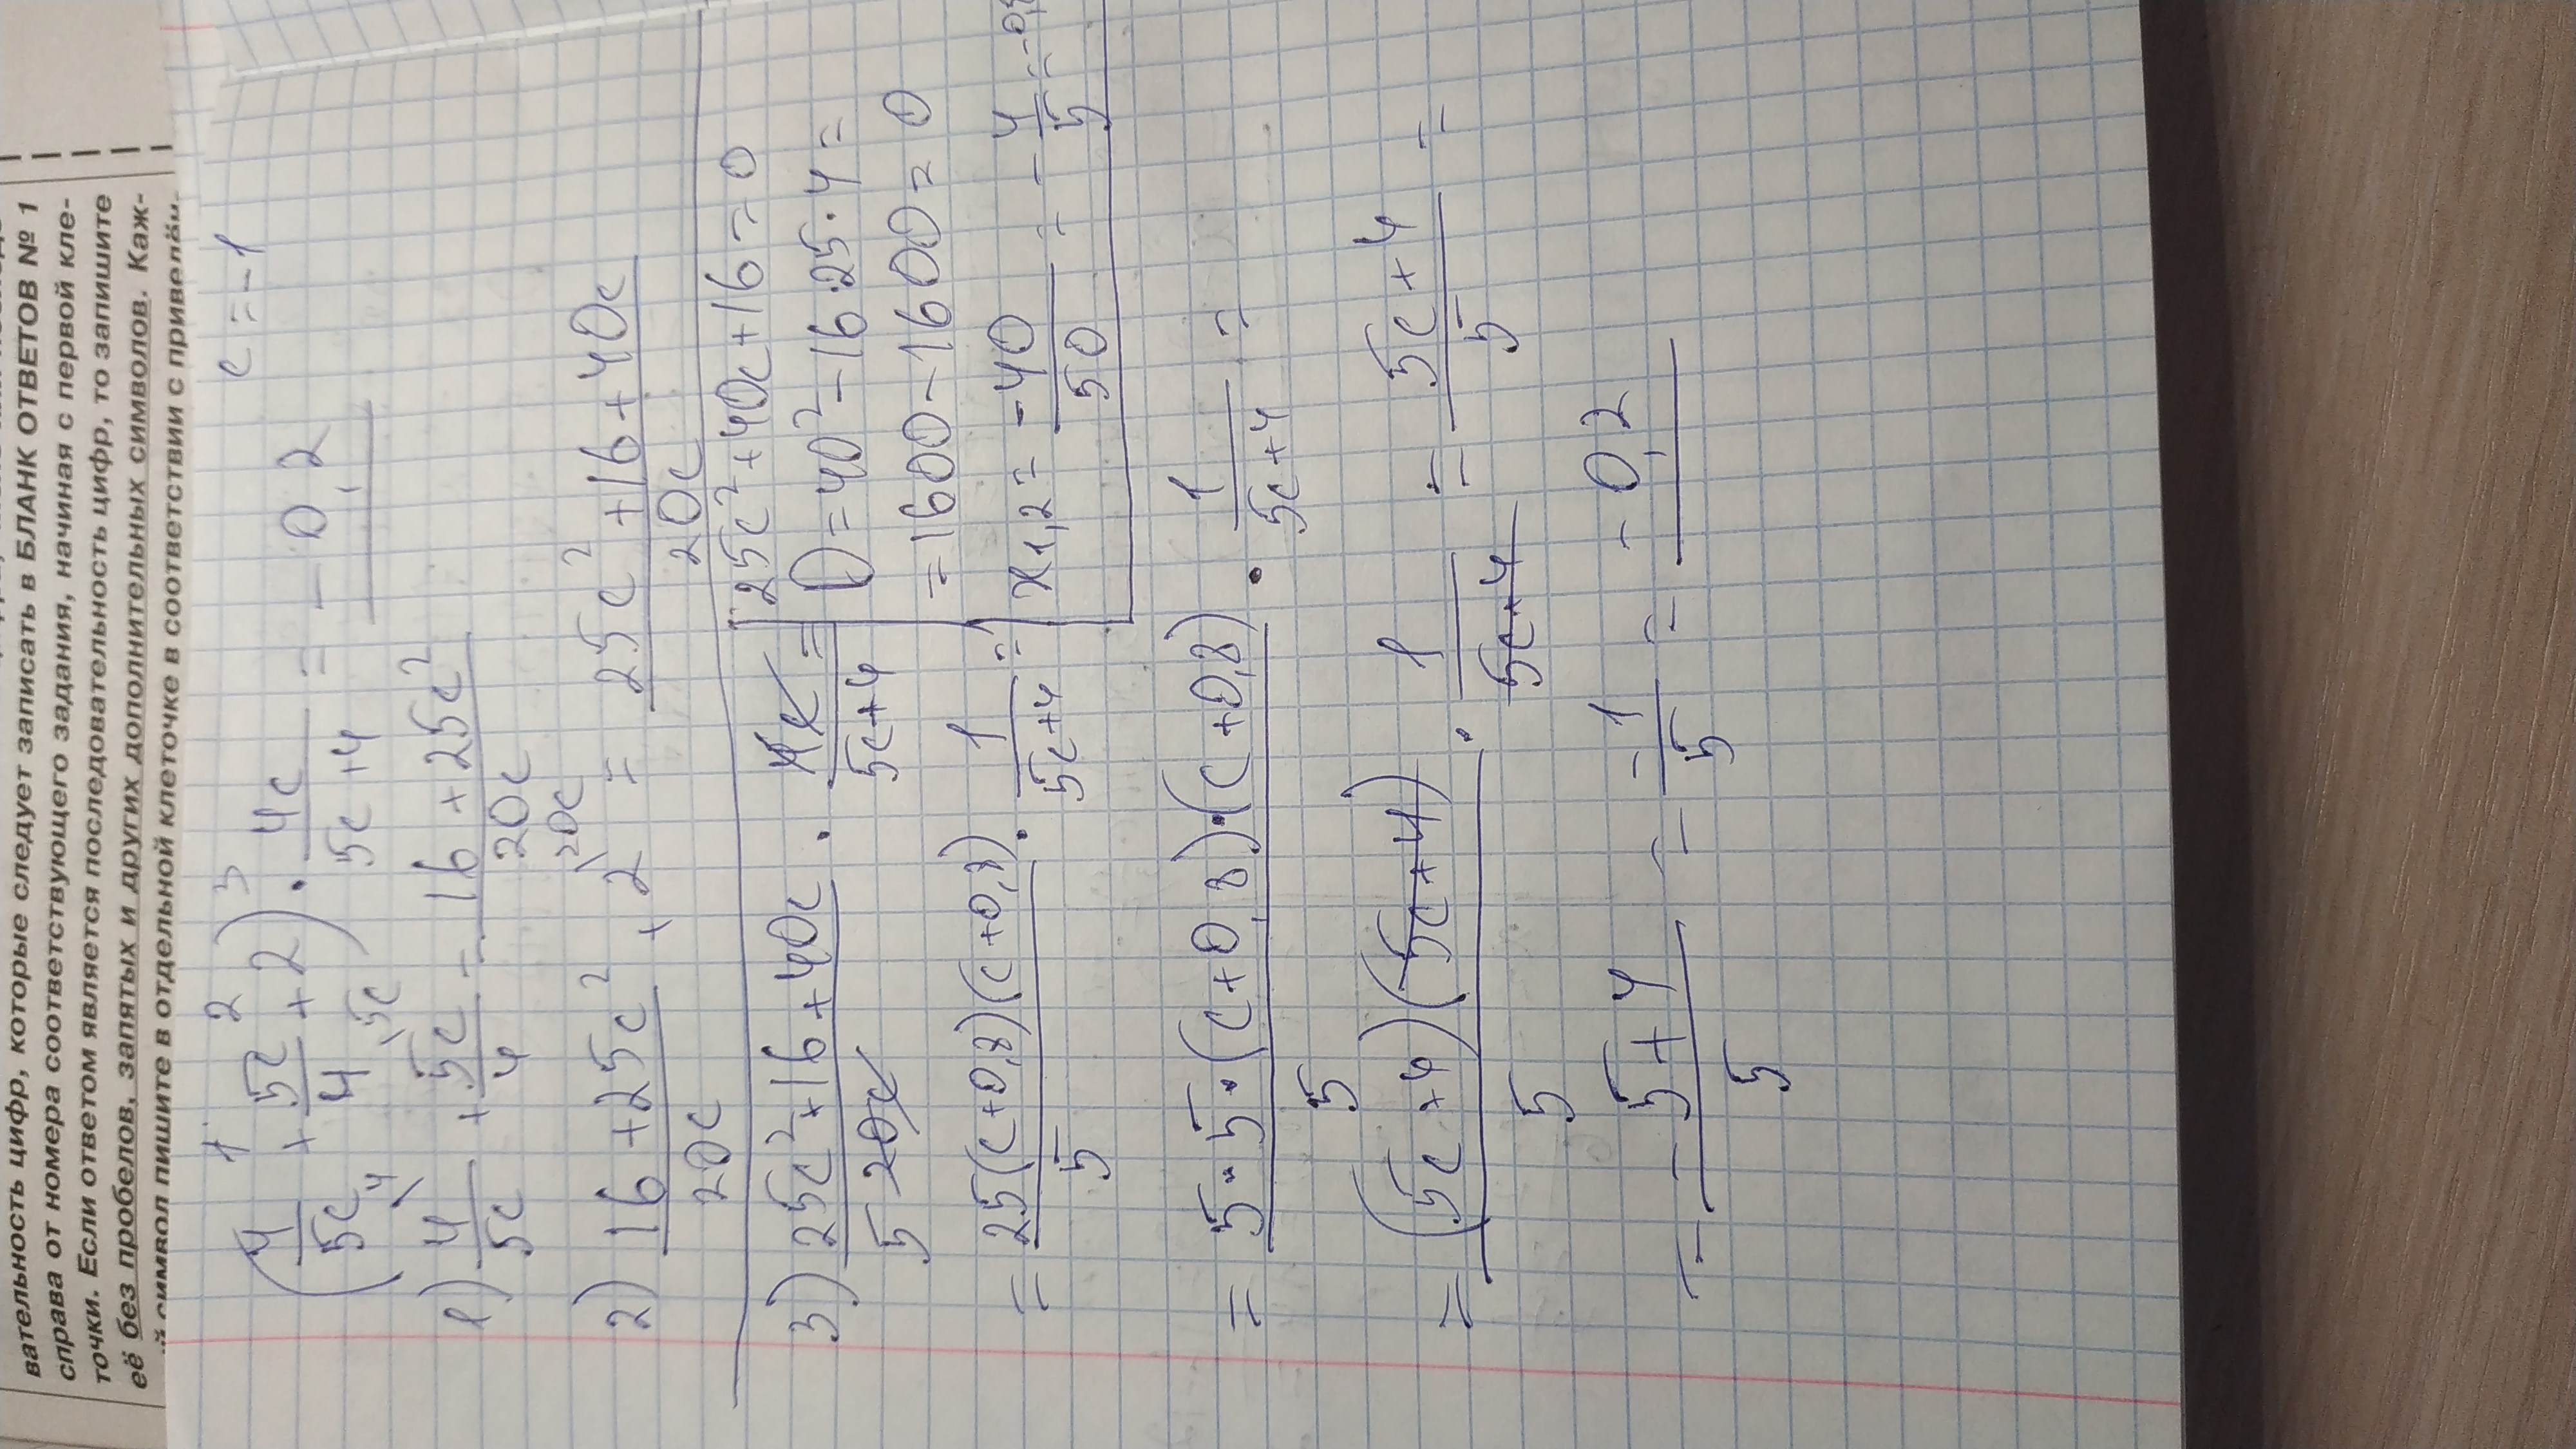 вательность цифр, которые следует записать в БЛАНК ОТВЕТОВ № 1
справа от номера соответствующего задания, начиная с первой кле-
точки. Если ответом является последовательность цифр, то запишите
её без пробелов, запятых и других дополнительных символов. Каж-
й символ пишите в отдельной клеточке в соответствии с приведён
c = -1
1 2 3
(4/5c + 5c/4 + 2) · 4c/5c+4 = -0,2
1) 4/5c \4 + 5c/4 \5c = 16+25c²/20c
2) 16+25c²/20c + 2 \20c = 25c²+16+40c/20c
3) 25c²+16+40c/5 20c · 4c/5c+4 =
25c²+40c+16=0
D=40²-16·25·4=
=1600-1600=0
x1,2= -40/50 = -4/5 = -0,
= 25(c+0,8)(c+0,8)/5 · 1/5c+4 =
= 5·5·(c+0,8)·(c+0,8)/5 · 1/5c+4 =
= (5c+4)(5c+4)/5 · 1/5c+4 = 5c+4/5 =
= -5+4/5 = -1/5 = -0,2